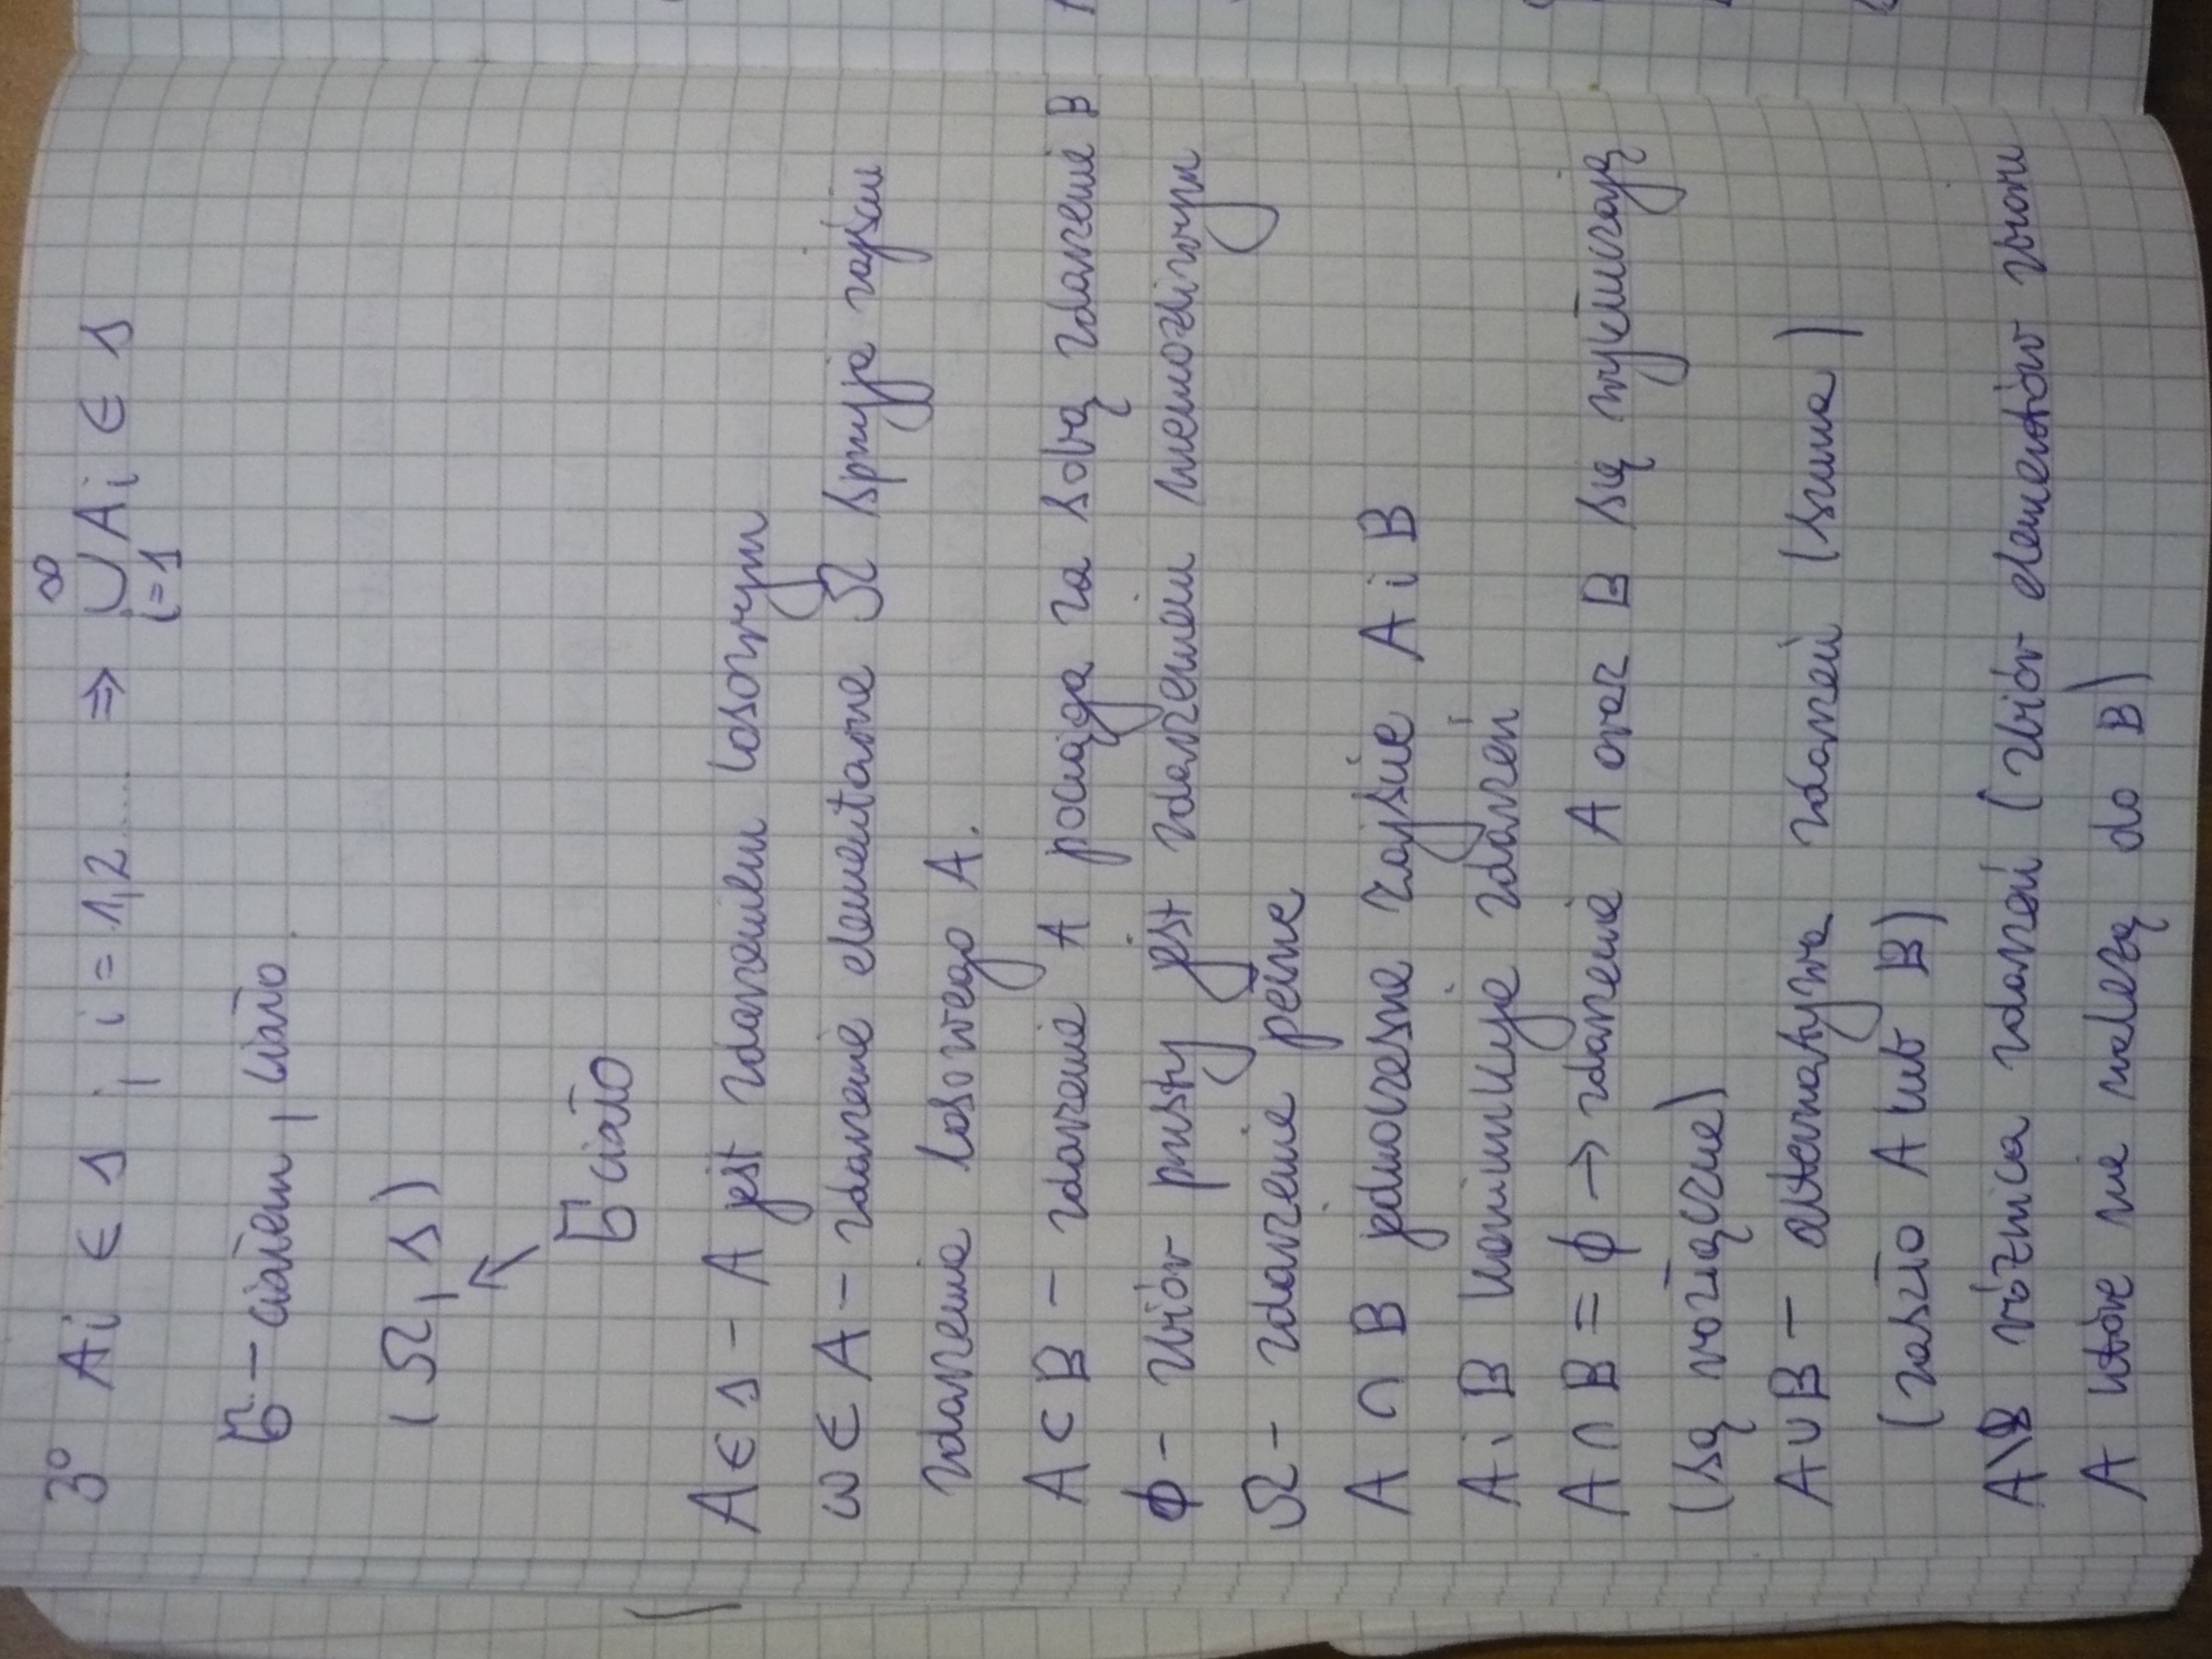 3° Ai ∈ S, i = 1,2..... ⇒ ∞∪i=1 Ai ∈ S
σ - ciałem, ciało
(Ω, S)
σ ciało
A ∈ S - A jest zdarzeniem losowym
ω ∈ A - zdarzenie elementarne Ω sprzyja zajściu
zdarzenia losowego A.
A ⊂ B - zdarzenie A pociąga za sobą zdarzenie B
ϕ - zbiór pusty jest zdarzeniem niemożliwym
Ω - zdarzenie pewne
A ∩ B jednoczesne zajście A i B
A i B koniunkcje zdarzeń
A ∩ B = ϕ → zdarzenie A oraz B się wykluczają
(są rozłączne)
A∪B - alternatywa zdarzeń (suma)
(zaszło A lub B)
A\B różnica zdarzeń (zbiór elementów zbioru
A które nie należą do B)